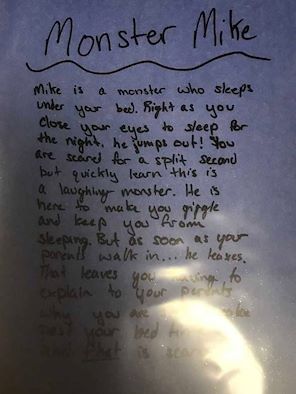 Monster Mike
Mike is a monster who sleeps
under your bed. Right as you
close your eyes to sleep for
the night, he jumps out! You
are scared for a split second
but quickly learn this is
a laughing monster. He is
here to make you giggle
and keep you from
sleeping. But as soon as your
parents walk in... he leaves.
That leaves you having to
explain to your parents
why you are
past your bed
and that is